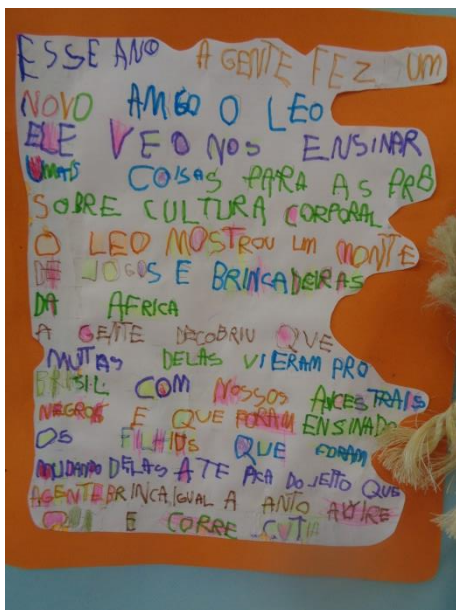 ESSE ANO A GENTE FEZ UM
NOVO AMIGO O LEO
ELE VEO NOS ENSINAR
UMAIS COISAS PARA AS PRB
SOBRE CULTURA CORPORAL
O LEO MOSTROU UM MONTE
DE JOGOS E BRINCADEIRAS
DA AFRICA
A GENTE DECOBRIU QUE
MUTAS DELAS VIERAM PRO
BRASIL COM NOSSOS ANCESTRAIS
NEGROS E QUE FORAM ENSINADO
OS FILHIOS QUE FORAM
MUDANDO DELAS ATE
DO JEITO QUE
AGENTE BRINCA IGUAL A
E CORRE CUTIA